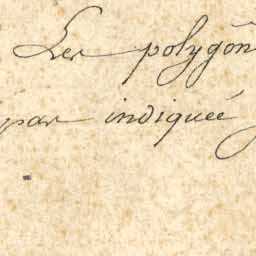 Les polygôn
par indiquée